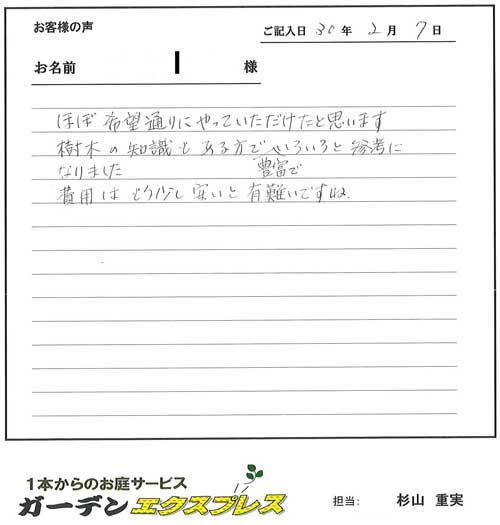 お客様の声
ご記入日 30年 2月 7日
お名前 様
ほぼ希望通りにやっていただけたと思います
樹木の知識もある方でいろいろと参考に
豊富で
なりました
費用はもう少し安いと有難いですね.
1本からのお庭サービス
ガーデンエクスプレス
担当: 杉山 重実